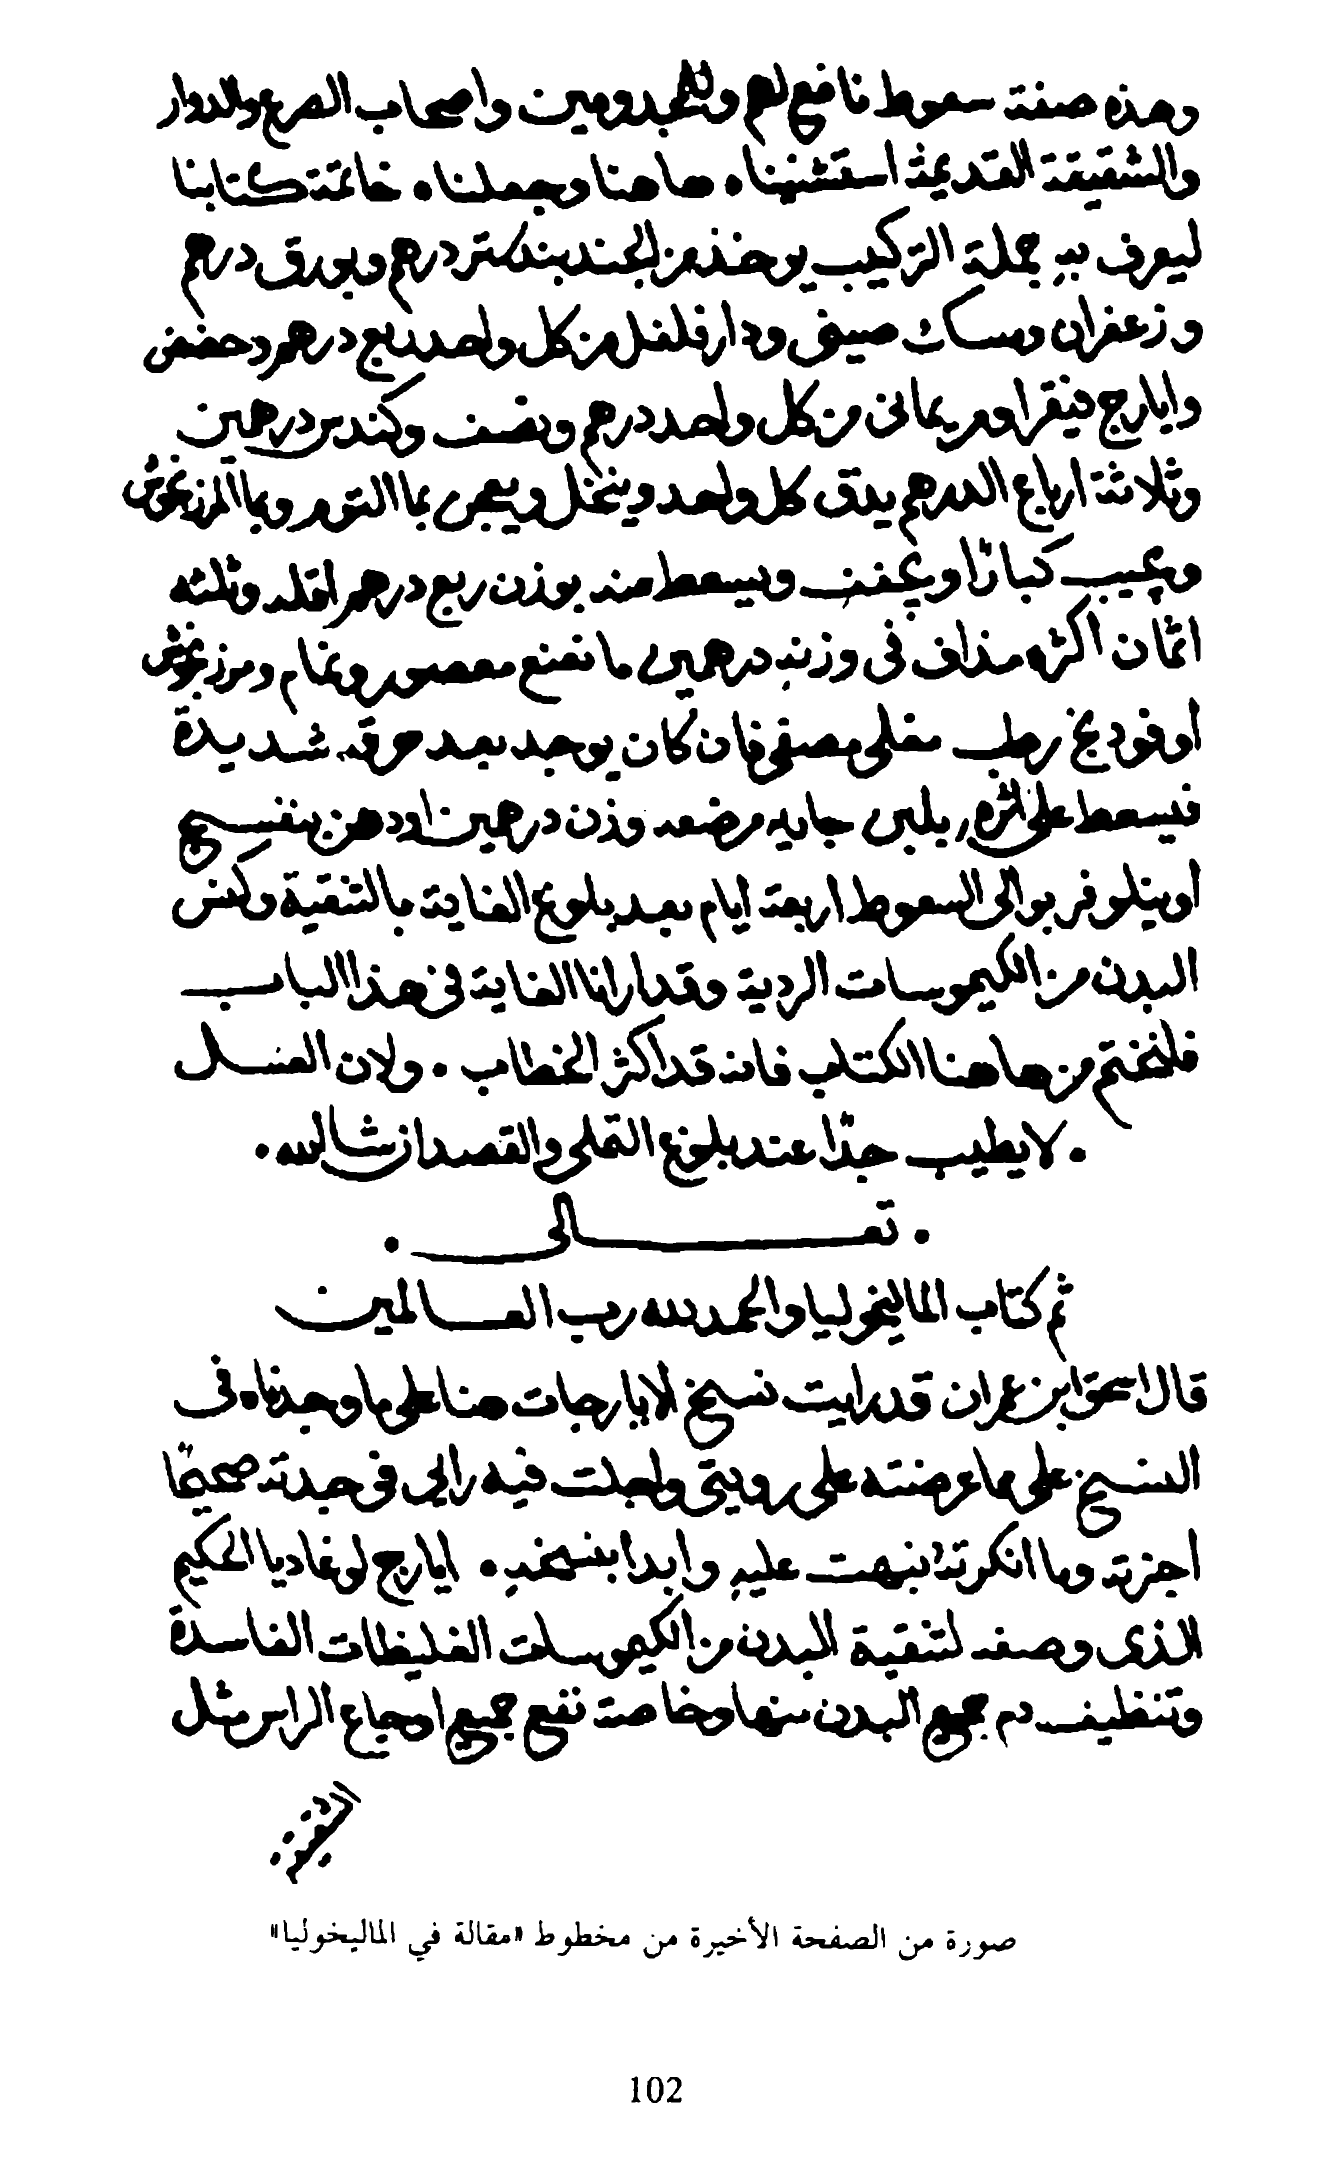 وهذه صفة سعوط نافع لهم وللمجدومين واصحاب الصرع والدوار
والشقيقة القديمة استثنيناه هاهنا وجعلناه خاتمة كتابنا
ليعرف به جملة التركيب يوخذ من الجندبدستر درهم وبورق درهم
وزعفران ومسك صينى ودارفلفل من كل واحد ربع درهم وحضض
وايارج فيقرا ومريمانى من كل واحد درهم ونصف وكندس درهمين
وثلاثة ارباع الدرهم يدق كل واحد وينخل ويعجن بما وبما المرزنجوش
ويحبب كبارًا ويجفف ويسعط منه بوزن ربع درهم اقله وثلثه
اثمان اكثره مذاف فى وزنه درهمين ما نعنع معصور ونمام ومرزنجوش
أوفودنج رطب مغلى مصفى فان كان يوجد بعد حرقه شديدة
فيسعط على اثره بلبن جاريه مرضعه وزن درهمين اودهن بنفسج
أونيلوفر بوالى السعوط اربعة ايام بعد بلوغ الغاية بالتنقية وكنس
البدن من الكيموسات الردية وقد ارانا الغاية فى هذا الباب
فلنختم من هاهنا الكتاب فانه قد اكثر الخطاب • ولان العسل
• لا يطيب جدًا عند بلوغ التملى والقصد ان شا الله •
• تعالى •
ثم كتاب الماليخوليا والحمد لله رب العالمين
قال اسحق ابن عمران قد رايت نسخ الايارجات هنا على ما وجدناه فى
النسخ على ما عرضته على رويتى واجلت فيه رايى فوجدته صحيحًا
اجزته وما انكرته نبهت عليه وابدا بنسخه • ايارج لوغاديا الحكيم
الذى وصفه لتنقية البدن من الكيموسات الغليظات الفاسدة
وتنظيف دم جميع البدن منها وخاصة نفع جميع اوجاع الراس مثل
الشقيقة
صورة من الصفحة الأخيرة من مخطوط «مقالة في الماليخوليا»
102